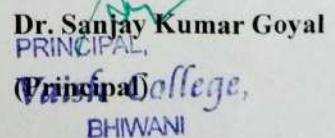 Dr. Sanjay Kumar Goyal
PRINCIPAL,
(Principal)
Vaish College,
BHIWANI